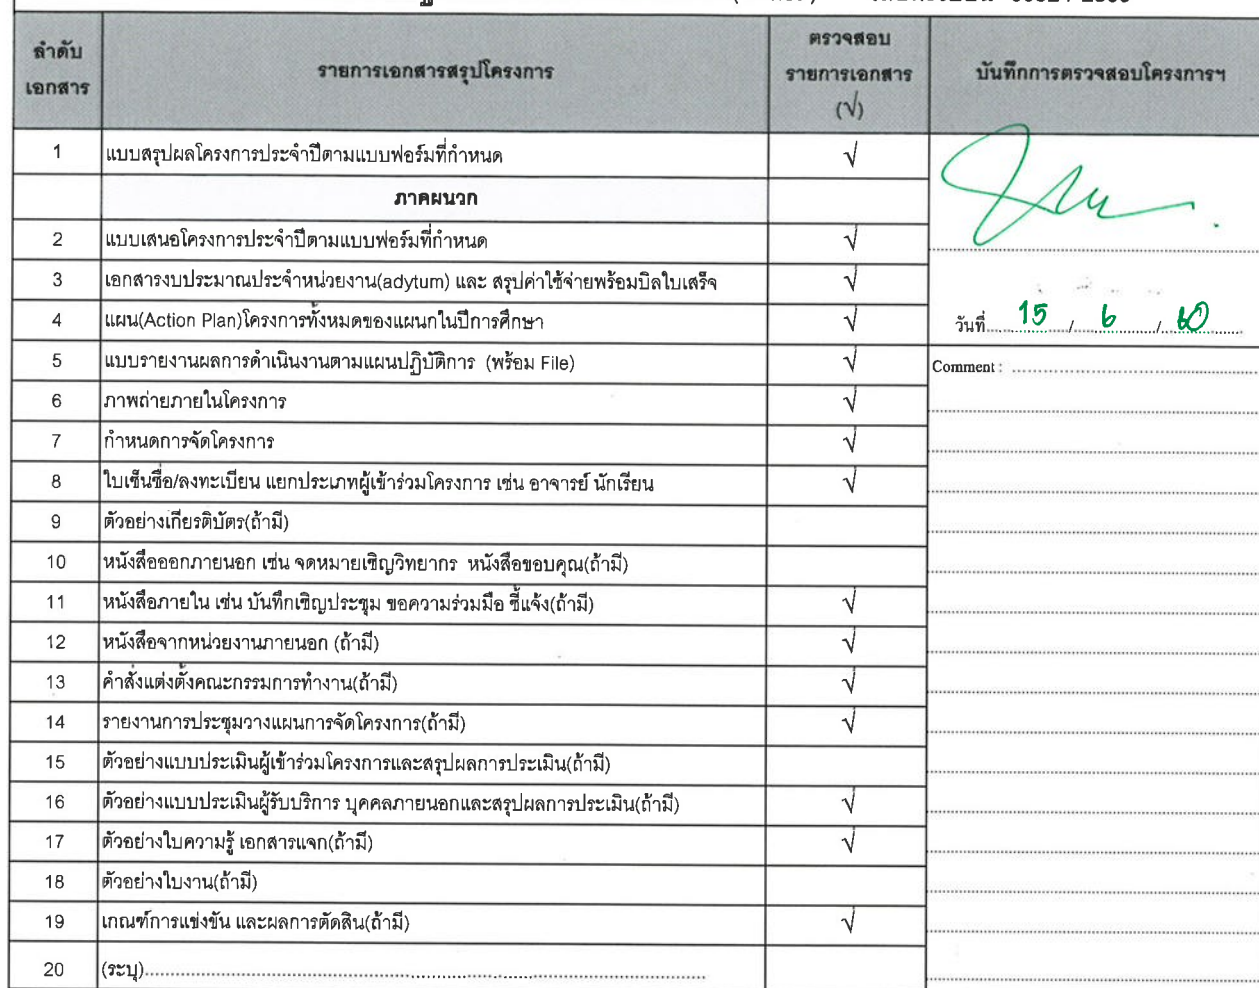 ลำดับ
เอกสาร
รายการเอกสารสรุปโครงการ
ตรวจสอบ
รายการเอกสาร
(√)
บันทึกการตรวจสอบโครงการฯ
1 แบบสรุปผลโครงการประจำปีตามแบบฟอร์มที่กำหนด √
ภาคผนวก
2 แบบเสนอโครงการประจำปีตามแบบฟอร์มที่กำหนด √
3 เอกสารงบประมาณประจำหน่วยงาน(adytum) และ สรุปค่าใช้จ่ายพร้อมบิลใบเสร็จ √
4 แผน(Action Plan)โครงการทั้งหมดของแผนกในปีการศึกษา √
วันที่ 15 / 6 / 60
5 แบบรายงานผลการดำเนินงานตามแผนปฏิบัติการ (พร้อม File) √
Comment :
6 ภาพถ่ายภายในโครงการ √
7 กำหนดการจัดโครงการ √
8 ใบเซ็นชื่อ/ลงทะเบียน แยกประเภทผู้เข้าร่วมโครงการ เช่น อาจารย์ นักเรียน √
9 ตัวอย่างเกียรติบัตร(ถ้ามี)
10 หนังสือออกภายนอก เช่น จดหมายเชิญวิทยากร หนังสือขอบคุณ(ถ้ามี)
11 หนังสือภายใน เช่น บันทึกเชิญประชุม ขอความร่วมมือ ชี้แจ้ง(ถ้ามี) √
12 หนังสือจากหน่วยงานภายนอก (ถ้ามี) √
13 คำสั่งแต่งตั้งคณะกรรมการทำงาน(ถ้ามี) √
14 รายงานการประชุมวางแผนการจัดโครงการ(ถ้ามี) √
15 ตัวอย่างแบบประเมินผู้เข้าร่วมโครงการและสรุปผลการประเมิน(ถ้ามี)
16 ตัวอย่างแบบประเมินผู้รับบริการ บุคคลภายนอกและสรุปผลการประเมิน(ถ้ามี) √
17 ตัวอย่างใบความรู้ เอกสารแจก(ถ้ามี) √
18 ตัวอย่างใบงาน(ถ้ามี)
19 เกณฑ์การแข่งขัน และผลการตัดสิน(ถ้ามี) √
20 (ระบุ)